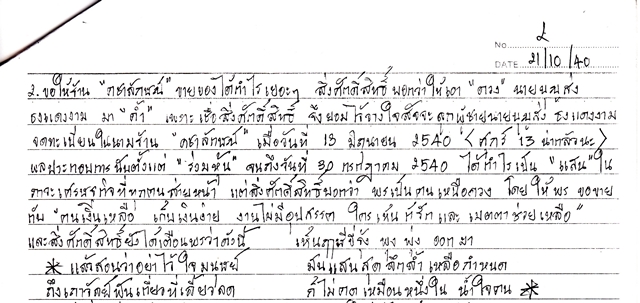 No. 2
DATE 21/10/40
2. ขอให้ร้าน "คชาลักษณ์" ขายของได้กำไรเยอะๆ สิ่งศักดิ์สิทธิ์บอกว่าให้เอา "ดวง" นายบุญส่ง
ธงแดงงาม มา "ค้ำ" เพราะเชื่อสิ่งศักดิ์สิทธิ์ จึงยอมไว้วางใจสัจจะลูกผู้ชายนายบุญส่ง ธงแดงงาม
จดทะเบียนในนามร้าน "คชาลักษณ์" เมื่อวันที่ 13 มิถุนายน 2540 (ศุกร์ 13 น่ากลัวนะ)
ผลประกอบการนับตั้งแต่ "ร่วมหุ้น" จนถึงวันที่ 30 กรกฎาคม 2540 ได้กำไรเป็น "แสน" ใน
ภาวะเศรษฐกิจที่ทุกคนส่ายหน้า แต่สิ่งศักดิ์สิทธิ์บอกว่า พรเป็นคนเหนือดวง โดยให้พร ขอขาย
กับ "คนเงินเหลือ เก็บเงินง่าย งานไม่มีอุปสรรค ใครเห็นก็รักและ เมตตาช่วยเหลือ"
และสิ่งศักดิ์สิทธิ์ยังได้เตือนพรว่าดังนี้ เห็นฤาษีขี้จั๊ง พง พุ่ง ออกมา
* แล้วสอนว่าอย่าไว้ใจมนุษย์ มันแสนสุดลึกล้ำเหลือกำหนด
ถึงเถาวัลย์พันเกี่ยวที่เลี้ยวลด ก็ไม่คดเหมือนหนึ่งใน น้ำใจคน *